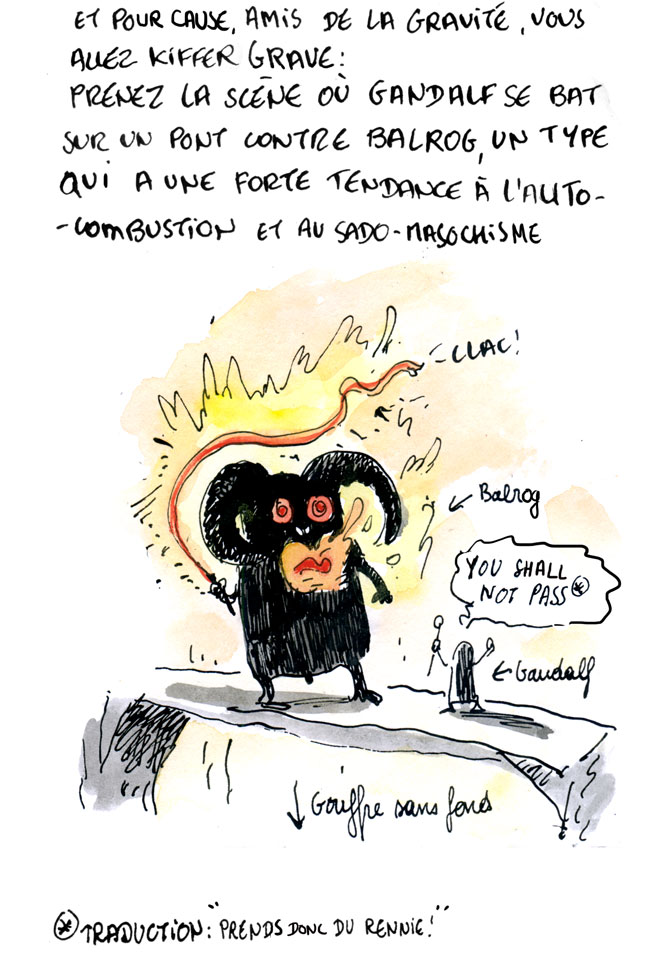 ET POUR CAUSE, AMIS DE LA GRAVITÉ, VOUS
ALLEZ KIFFER GRAVE:
PRENEZ LA SCÈNE OÙ GANDALF SE BAT
SUR UN PONT CONTRE BALROG, UN TYPE
QUI A UNE FORTE TENDANCE À L'AUTO-
-COMBUSTION ET AU SADO-MASOCHISME
CLAC!
← Balrog
YOU SHALL
NOT PASS*
← Gandalf
↓ Gouffre sans fond
* TRADUCTION: "PRENDS DONC DU RENNIE!"